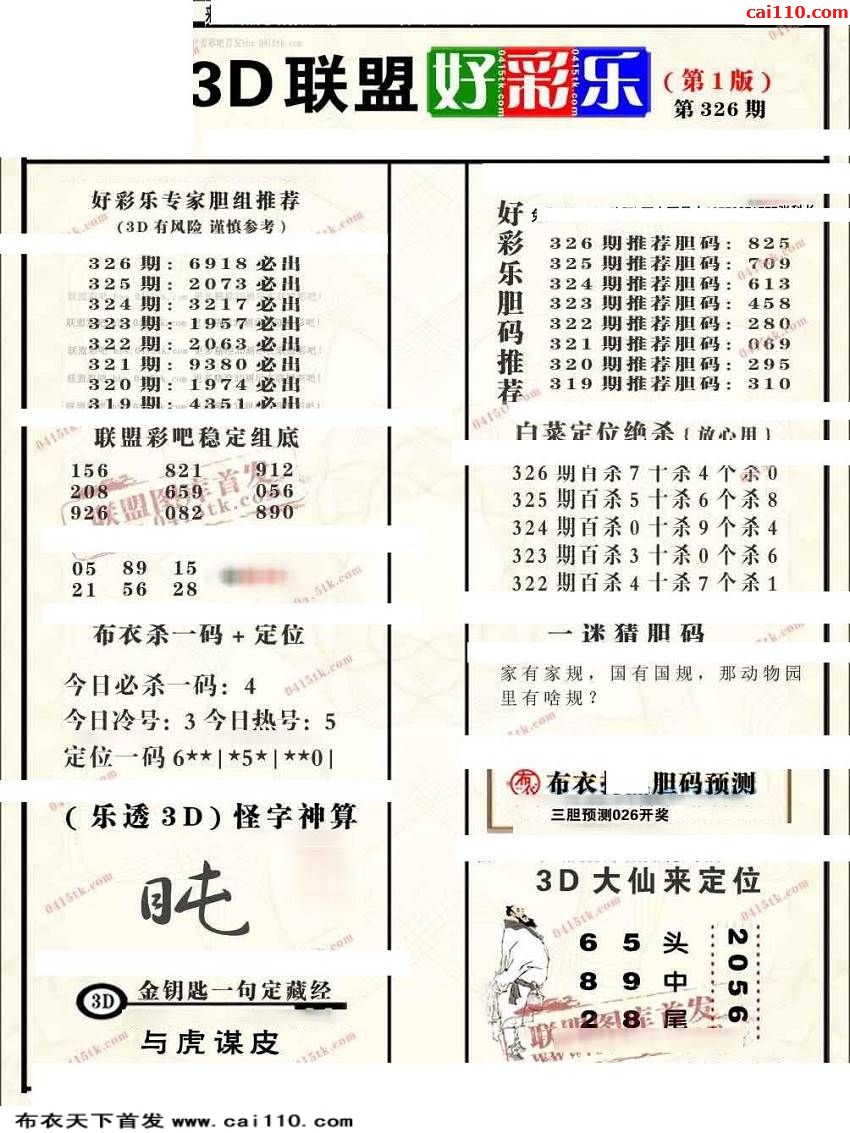 cai110.com
3D联盟好彩乐
(第1版)
第326期
好彩乐专家胆组推荐
(3D有风险 谨慎参考)
326期: 6918必出
325期: 2073必出
324期: 3217必出
323期: 1957必出
322期: 2063必出
321期: 9380必出
320期: 1974必出
319期: 4351必出
联盟彩吧稳定组底
156 821 912
208 659 056
926 082 890
05 89 15
21 56 28
布衣杀一码+定位
今日必杀一码: 4
今日冷号: 3 今日热号: 5
定位一码6**|*5*|**0|
(乐透3D)怪字神算
3D 金钥匙一句定藏经
与虎谋皮
好彩乐胆码推荐
326期推荐胆码: 825
325期推荐胆码: 709
324期推荐胆码: 613
323期推荐胆码: 458
322期推荐胆码: 280
321期推荐胆码: 069
320期推荐胆码: 295
319期推荐胆码: 310
白菜定位绝杀{放心用}
326期百杀7十杀4个杀0
325期百杀5十杀6个杀8
324期百杀0十杀9个杀4
323期百杀3十杀0个杀6
322期百杀4十杀7个杀1
一迷猜胆码
家有家规，国有国规，那动物园
里有啥规？
布衣 胆码预测
三胆预测026开奖
3D大仙来定位
6 5 头
8 9 中
2 8 尾
2056
联盟图库首发
0415tk.com
布衣天下首发 www.cai110.com